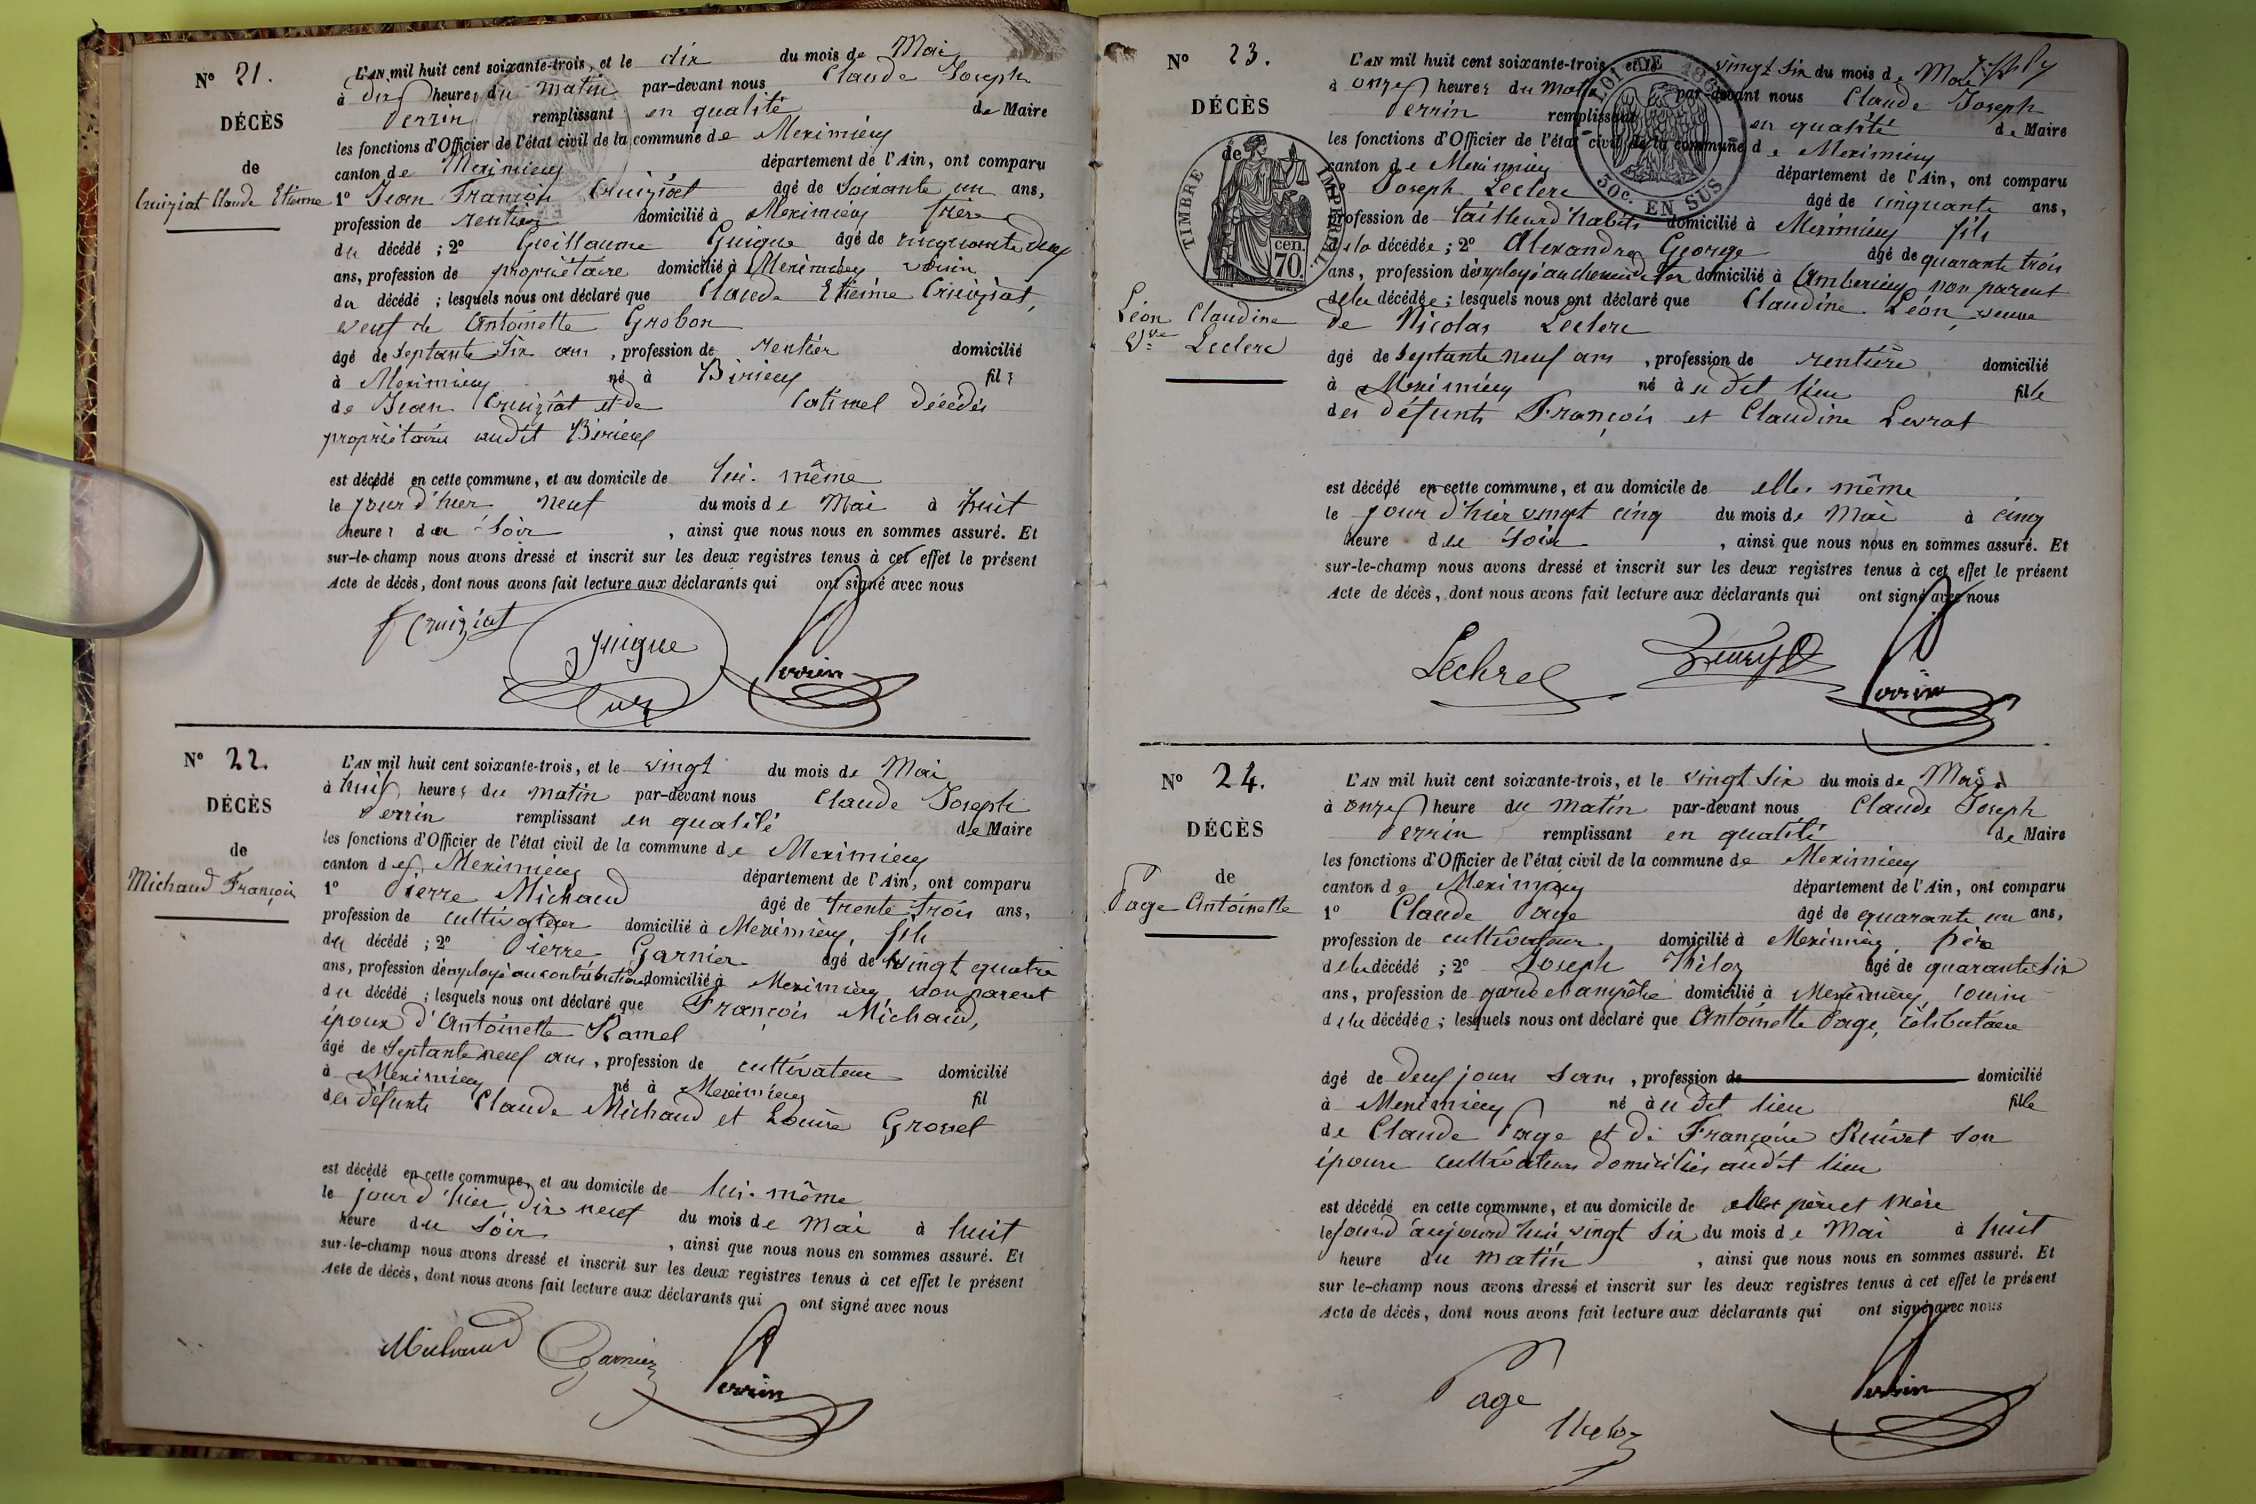 N° 21.
DÉCÈS
de
Cruiziat Claude Etienne
L'AN mil huit cent soixante-trois, et le dix du mois de Mai
à dix heures du matin par-devant nous Claude Joseph
Perrin remplissant en qualité de Maire
les fonctions d'Officier de l'état civil de la commune de Meximieux
canton de Meximieux département de l'Ain, ont comparu
1° Jean François Cruiziat âgé de soixante un ans,
profession de rentier domicilié à Meximieux frère
du décédé ; 2° Guillaume Guigue âgé de cinquante deux
ans, profession de propriétaire domicilié à Meximieux voisin
du décédé ; lesquels nous ont déclaré que Claude Etienne Cruiziat,
veuf de Antoinette Grobon
âgé de septante six ans, profession de rentier domicilié
à Meximieux né à Birieux fils
de Jean Cruiziat et de Catimel décédés
propriétaires audit Birieux
est décédé en cette commune, et au domicile de lui-même
le jour d'hier neuf du mois de Mai à huit
heures du soir, ainsi que nous nous en sommes assuré. Et
sur-le-champ nous avons dressé et inscrit sur les deux registres tenus à cet effet le présent
Acte de décès, dont nous avons fait lecture aux déclarants qui ont signé avec nous
Cruiziat
Guigue
Perrin
N° 22.
DÉCÈS
de
Michaud François
L'AN mil huit cent soixante-trois, et le vingt du mois de Mai
à huit heures du matin par-devant nous Claude Joseph
Perrin remplissant en qualité de Maire
les fonctions d'Officier de l'état civil de la commune de Meximieux
canton de Meximieux département de l'Ain, ont comparu
1° Pierre Michaud âgé de trente trois ans,
profession de cultivateur domicilié à Meximieux, fils
du décédé ; 2° Pierre Garnier âgé de vingt quatre
ans, profession d'employé au contributions domicilié à Meximieux non parent
du décédé ; lesquels nous ont déclaré que François Michaud,
époux d'Antoinette Ramel
âgé de septante neuf ans, profession de cultivateur domicilié
à Meximieux né à Meximieux fil
des défunts Claude Michaud et Louise Grosset
est décédé en cette commune, et au domicile de lui-même
le jour d'hier dix neuf du mois de Mai à huit
heure du soir, ainsi que nous nous en sommes assuré. Et
sur-le-champ nous avons dressé et inscrit sur les deux registres tenus à cet effet le présent
Acte de décès, dont nous avons fait lecture aux déclarants qui ont signé avec nous
Michaud
Garnier
Perrin
N° 23.
DÉCÈS
de
TIMBRE IMPÉRIAL
cen.
70
LOI DE 1862
50c. EN SUS
Léon Claudine
Vve Leclerc
L'AN mil huit cent soixante-trois, et le vingt six du mois de Mai
à onze heures du matin par-devant nous Claude Joseph
Perrin remplissant en qualité de Maire
les fonctions d'Officier de l'état civil de la commune de Meximieux
canton de Meximieux département de l'Ain, ont comparu
1° Joseph Leclerc âgé de cinquante ans,
profession de tailleur d'habits domicilié à Meximieux fils
de la décédée ; 2° Alexandre George âgé de quarante trois
ans, profession d'employé au chemin de fer domicilié à Amberieux non parent
de la décédée ; lesquels nous ont déclaré que Claudine Léon, veuve
de Nicolas Leclerc
âgé de septante neuf ans, profession de rentière domicilié
à Meximieux né à u dit lieu fille
des défunts François et Claudine Levrat
est décédé en cette commune, et au domicile de elle-même
le jour d'hier vingt cinq du mois de Mai à cinq
heure du soir, ainsi que nous nous en sommes assuré. Et
sur-le-champ nous avons dressé et inscrit sur les deux registres tenus à cet effet le présent
Acte de décès, dont nous avons fait lecture aux déclarants qui ont signé avec nous
Perrin
N° 24.
DÉCÈS
de
Page Antoinette
L'AN mil huit cent soixante-trois, et le vingt six du mois de Mai
à onze heure du matin par-devant nous Claude Joseph
Perrin remplissant en qualité de Maire
les fonctions d'Officier de l'état civil de la commune de Meximieux
canton de Meximieux département de l'Ain, ont comparu
1° Claude Page âgé de quarante un ans,
profession de cultivateur domicilié à Meximieux, père
de la décédé ; 2° Joseph Théloz âgé de quarante six
ans, profession de garde champêtre domicilié à Meximieux, cousin
de la décédée ; lesquels nous ont déclaré que Antoinette Page, célibataire
âgé de deux jours sans, profession de domicilié
à Meximieux né à u dit lieu fille
de Claude Page et de Françoise Ruivet son
épouse cultivateurs domiciliés audit lieu
est décédé en cette commune, et au domicile de père et mère
le jour d'aujourd'hui vingt six du mois de Mai à huit
heure du matin, ainsi que nous nous en sommes assuré. Et
sur le-champ nous avons dressé et inscrit sur les deux registres tenus à cet effet le présent
Acte de décès, dont nous avons fait lecture aux déclarants qui ont signé avec nous
Page
Perrin